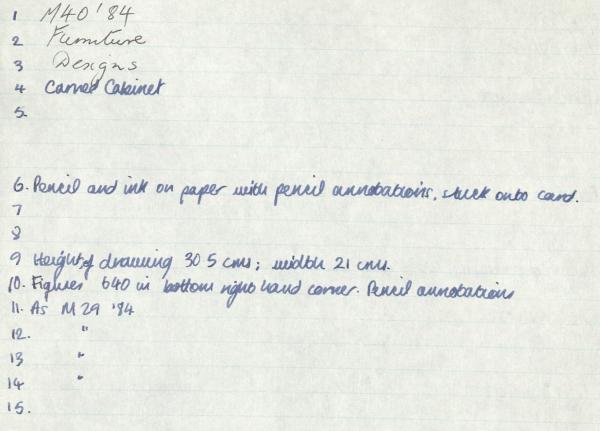 1 M40 '84
2 Furniture
3 Designs
4 Carved Cabinet
5.
6. Pencil and ink on paper with pencil annotations, stuck onto card.
7
8
9 Height of drawing 30 5 cms; width 21 cms.
10. Figures 640 in bottom right hand corner. Pencil annotations
11. As M29 '84
12. "
13 "
14 "
15.